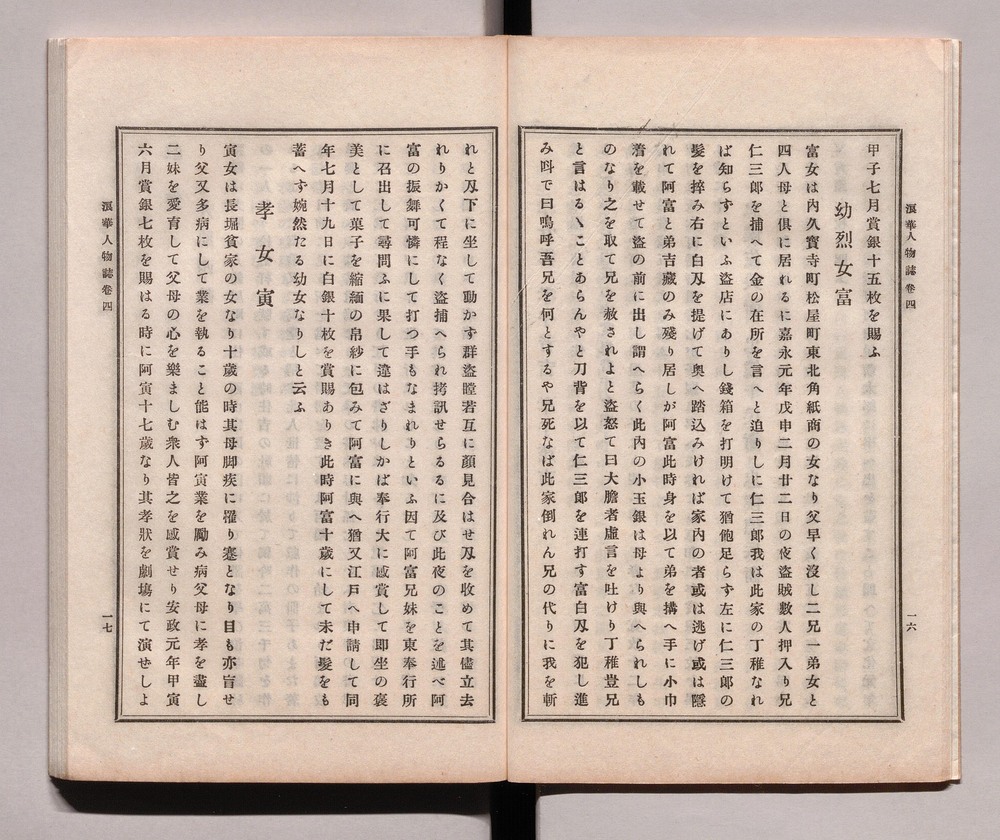 浪華人物誌卷四
一六
甲子七月賞銀十五枚を賜ふ
幼烈女富
富女は內久寶寺町松屋町東北角紙商の女なり父早く沒し二兄一弟女と
四人母と俱に居れるに嘉永元年戊申二月廿二日の夜盜賊數人押入り兄
仁三郎を捕へて金の在所を言へと迫りしに仁三郎我は此家の丁稚なれ
ば知らすといふ盜店にありし錢箱を打明けて猶飽足らず左に仁三郎の
髮を捽み右に白刄を提げて奧へ踏込みければ家內の者或は逃げ或は隱
れて阿富と弟吉藏のみ殘り居しが阿富此時身を以て弟を搆へ手に小巾
着を載せて盜の前に出し謂へらく此內の小玉銀は母より與へられしも
のなり之を取て兄を赦されよと盜怒て曰大膽者虛言を吐けり丁稚豈兄
と言はるゝことあらんやと刀背を以て仁三郎を連打す富白刄を犯し進
み呌で曰嗚呼吾兄を何とするや兄死なば此家倒れん兄の代りに我を斬
れと刄下に坐して動かす群盜瞠若互に顏見合はせ刄を收めて其儘立去
れりかくて程なく盜捕へられ拷訊せらるるに及び此夜のことを述べ阿
富の振舞可憐にして打つ手もなまれりといふ因て阿富兄妹を東奉行所
に召出して尋問ふに果して違はざりしかば奉行大に感賞して卽坐の褒
美として菓子を縮緬の帛紗に包みて阿富に與へ猶又江戶へ申請して同
年七月十九日に白銀十枚を賞賜ありき此時阿富十歲にして未だ髮をも
蓄へす婉然たる幼女なりしと云ふ
孝女寅
寅女は長堀貧家の女なり十歲の時其母脚疾に罹り蹇となり目も亦盲せ
り父又多病にして業を執ること能はず阿寅業を勵み病父母に孝を盡し
二妹を愛育して父母の心を樂ましむ衆人皆之を感賞せり安政元年甲寅
六月賞銀七枚を賜はる時に阿寅十七歲なり其孝狀を劇塲にて演せしよ
浪華人物誌卷四
一七